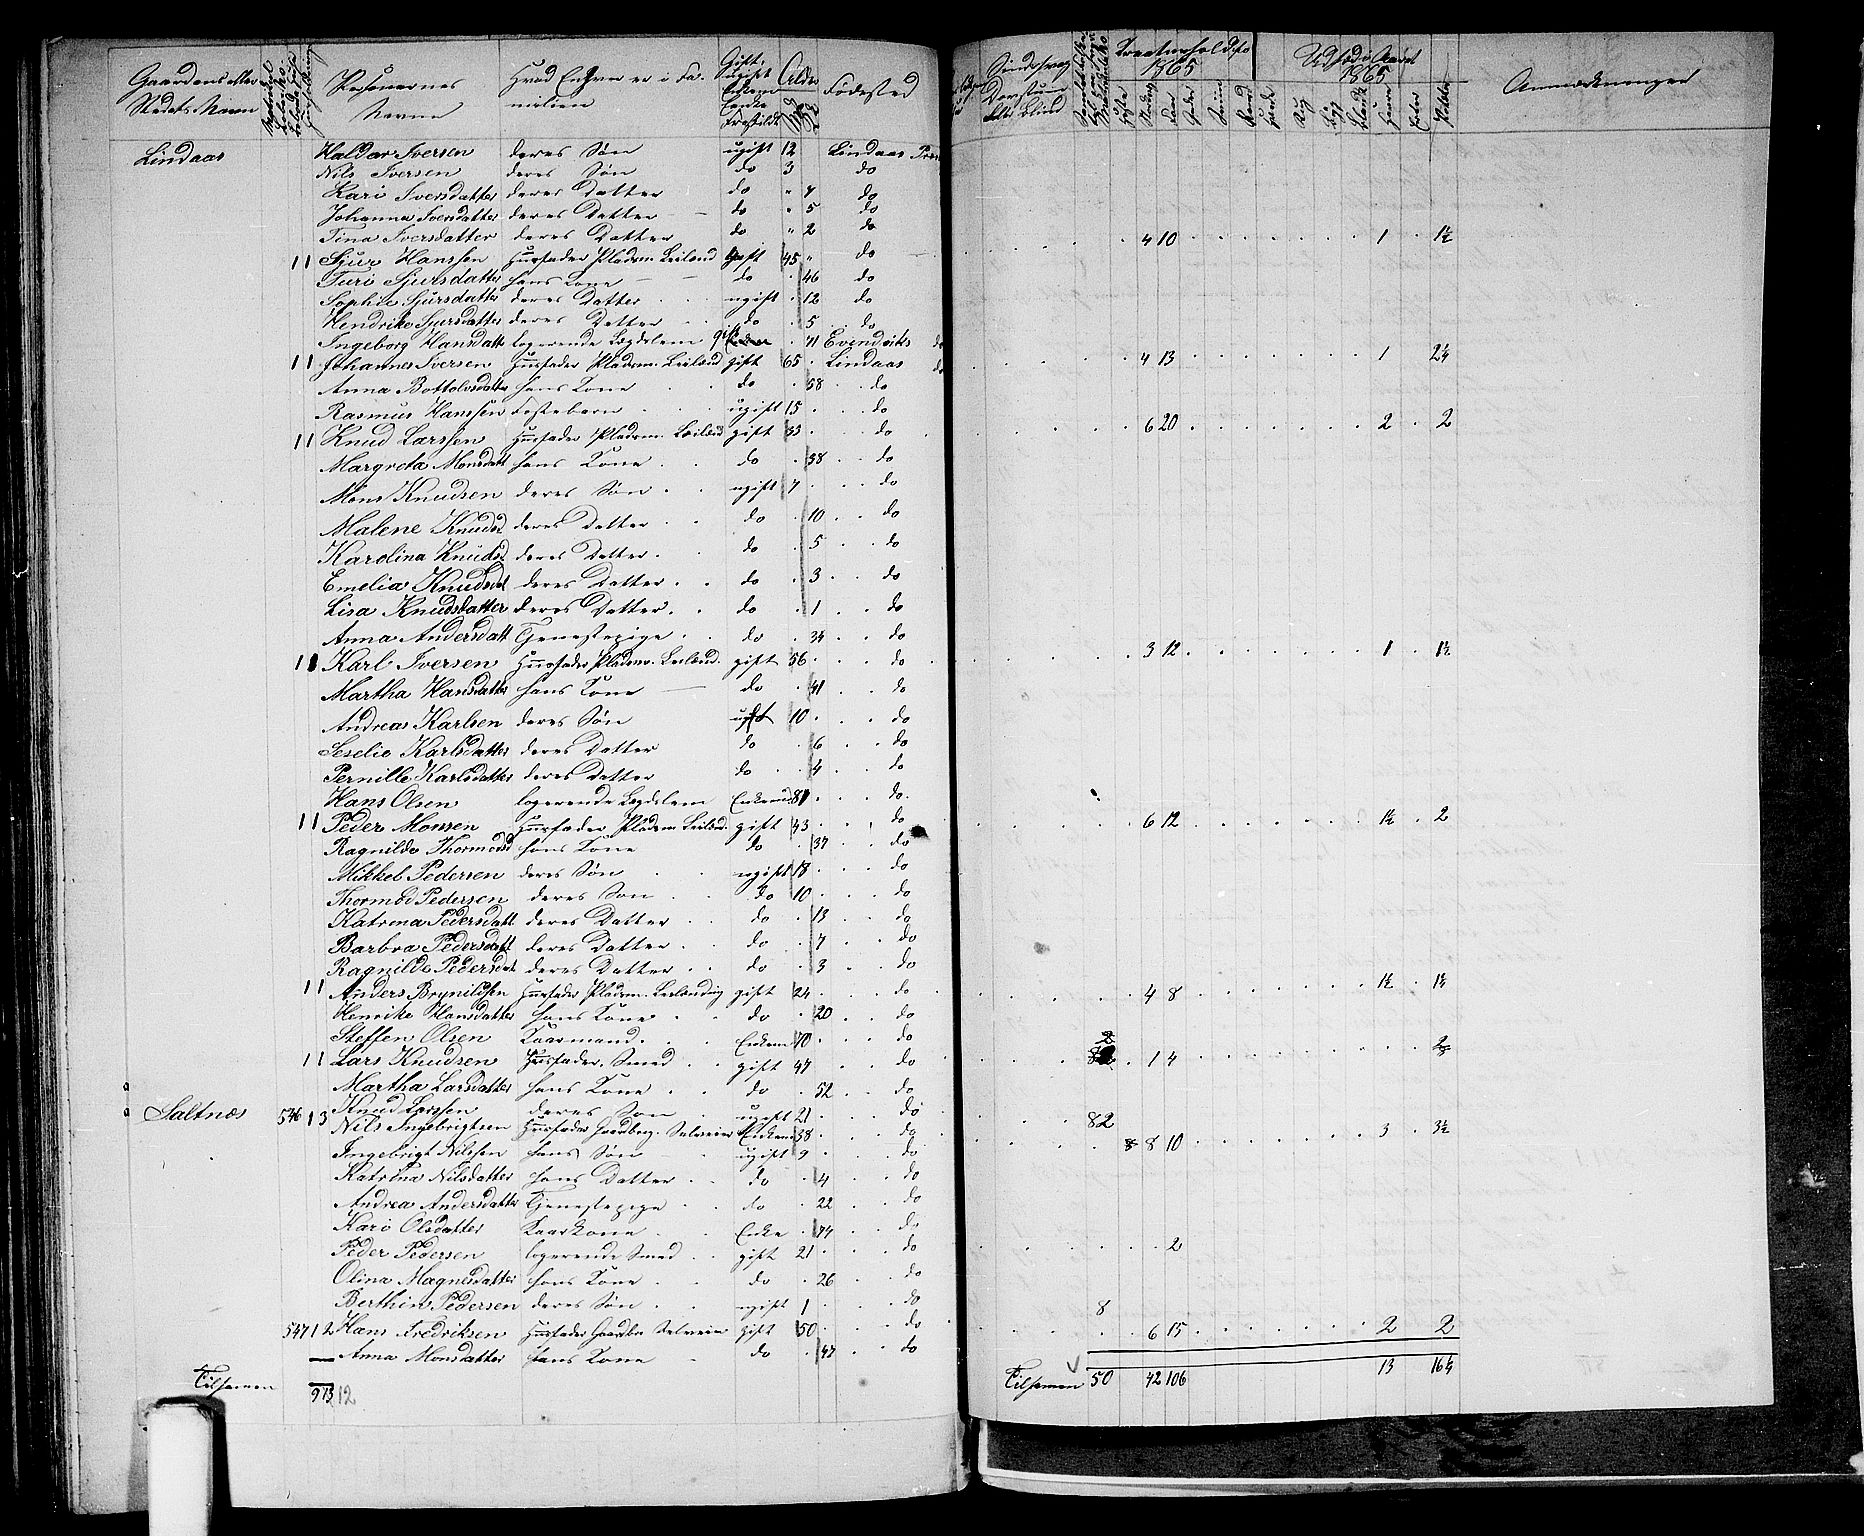 Gaardens eller Stedets Navn
Personernes Navne
Hvad Enhver er i Familien
Gift, ugift
Alder
Fødested
Kreaturhold 1865
Udsæd i Aaret 1865
Anmærkninger
Lindaas Haldor Iversen deres Søn ugift 12 Lindaas
Nils Iversen deres Søn do 3 do
Kari Iversdatter deres Datter do " 7 do
Johanna Iversdatter deres Datter do " 5 do
Tina Iversdatter deres Datter do " 2 do
1 1 Sjur Hanssen Huusfader Pladsm. Leilænd gift 45 " do 4 10 1 1½
Turi Sjursdatter hans Kone do 46 do
Sophie Sjursdatter deres Datter ugift 12 do
Hendrike Sjursdatter deres Datter do 5 do
Ingeborg Hansdatt logerende Lægdslem 71 Evendviks
1 1 Johannes Iversen Huusfader Pladsm. Leilænd gift 65 Lindaas do 4 13 1 2¼
Anna Bottolvsdatter hans Kone do 58 do
Rasmus Hanssen Fosterbarn ugift 15 do
1 1 Knud Larssen Huusfader Pladsm. Leilænd gift 33 do 6 20 2 2
Margreta Monsdatt hans Kone do 38 do
Mons Knudsen deres Søn ugift 7 do
Malene Knudsd deres Datter do 10 do
Karolina Knudsd deres Datter do 5 do
Emelia Knudsdat deres Datter do 3 do
Lisa Knudsdatter deres Datter do 1 do
Anna Andersdatt Tjenestepige do 34 do
1 1 Karl Iversen Huusfader Pladsm. Leilænd. gift 56 do 3 12 1 1½
Martha Hansdatter hans Kone do 41 do
Andreas Karlsen deres Søn ugift 10 do
Seselie Karlsdatter deres Datter do 6 do
Pernille Karlsdatter deres Datter do 4 do
Hans Olsen logerende Lægdslem Enkem 81 do
1 1 Peder Monsen Huusfader Pladsm Leilænd. gift 43 do 6 12 1½ 2
Ragnilde Thormodsd hans Kone do 37 do
Mikkel Pedersen deres Søn ugift 18 do
Thormod Pedersen deres Søn do 10 do
Katrina Pedersdatt deres Datter do 13 do
Barbra Pedersdatt deres Datter do 7 do
Ragnilde Pedersdat deres Datter do 3 do
1 1 Anders Brynildsen Huusfader Pladsm. Leilænding gift 24 do 4 8 1½ 1½
Henrike Hansdatter hans Kone do 20 do
Steffen Olsen Kaarmand Enkem 70 do
1 1 Lars Knudsen Huusfader. Smed gift 47 do 1 4
Martha Larsdatter hans Kone do 52 do
Knud Larssen deres Søn ugift 21 do
Saltnæs 546 1 3 Nils Ingebrigtsen Huusfader Gaardbr. Selveier Enkem 38 do 82 8 10 3 3½
Ingebrigt Nilssen hans Søn ugift 9 do
Katrina Nilsdatter hans Datter do 4 do
Andrea Andersdatter Tjenestepige do 22 do
Kari Olsdatter Kaarkone Enke 74 do
Peder Pedersen logerende Smed gift 21 do 2
Olina Magnesdatter hans Kone do 26 do
Berthin Pedersen deres Søn ugift 1 do
547 1 2 Hans Fredriksen Huusfader Gaardbr Selveier gift 50 do 8 6 15 2 2
Anna Monsdatter hans Kone do 47 do
Tilsamen 9 13 12
Tilsamen 50 42 106 13 16¼